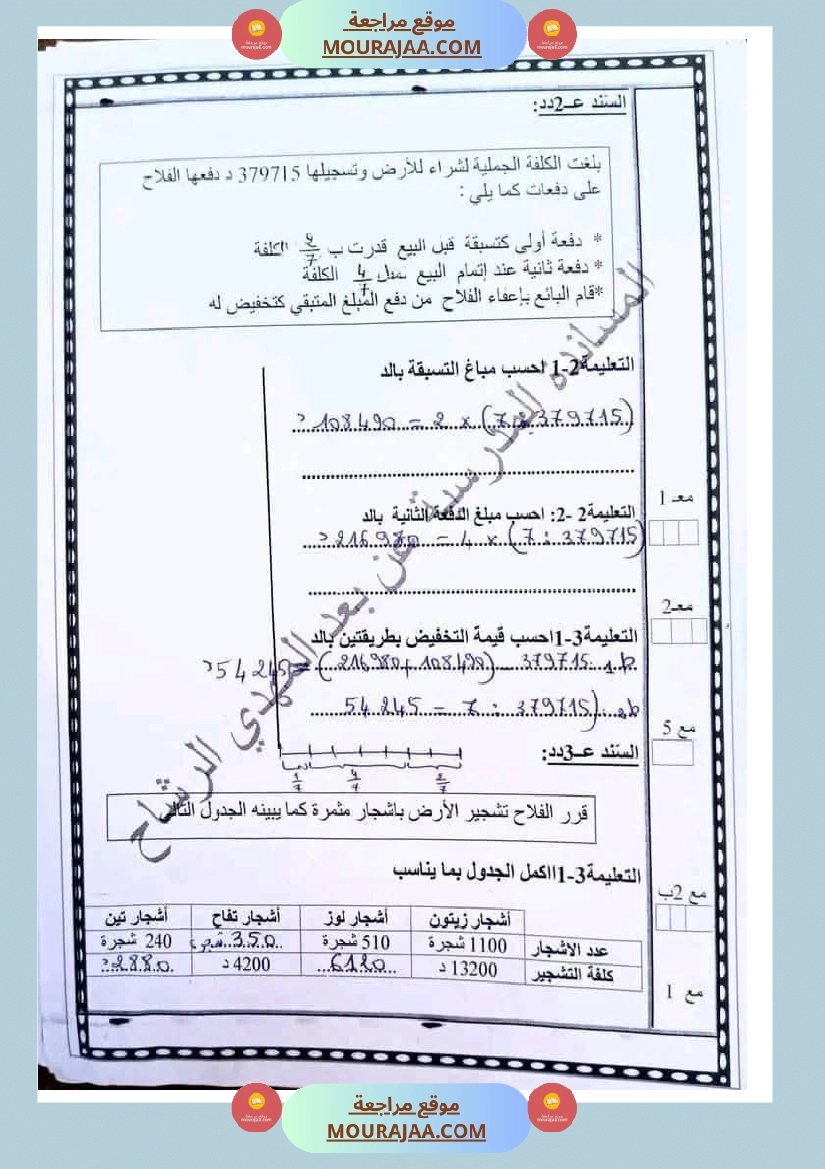 موقع مراجعة
MOURAJAA.COM
السند عــ2دد:
بلغت الكلفة الجملية لشراء للأرض وتسجيلها 379715 د دفعها الفلاح
على دفعات كما يلي :
* دفعة أولى كتسبقة قبل البيع قدرت ب 2/7 الكلفة
* دفعة ثانية عند إتمام البيع تمثل 4/7 الكلفة
*قام البائع بإعفاء الفلاح من دفع المبلغ المتبقي كتخفيض له
التعليمة2-1 احسب مباغ التسبقة بالد
(379715 : 7) x 2 = 108490 د
معـ 1
التعليمة2 -2: احسب مبلغ الدفعة الثانية بالد
(379715 : 7) x 4 = 216980 د
معـ2
التعليمة3-1احسب قيمة التخفيض بطريقتين بالد
ط1. 379715 - (108490 + 216980) = 54245 د
ط2. (379715 : 7 = 54245
مع 5
السند عــ3دد:
1/7 4/7 2/7
قرر الفلاح تشجير الأرض باشجار مثمرة كما يبينه الجدول التالي
التعليمة3-1ااكمل الجدول بما يناسب
مع 2ب
أشجار زيتون أشجار لوز أشجار تفاح أشجار تين
عدد الاشجار 1100 شجرة 510 شجرة 350 شجرة 240 شجرة
كلفة التشجير 13200 د 6120 4200 د 2880 د
مع 1
المساندة المدرسية عن بعد المهدي الرتاح
موقع مراجعة
MOURAJAA.COM